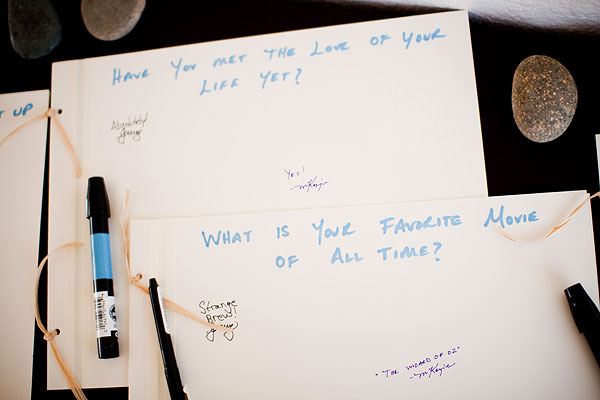 T UP
HAVE YOU MET THE LOVE OF YOUR
LIFE YET?
Absolutely!
YES!
WHAT IS YOUR FAVORITE MOVIE
OF ALL TIME?
Strange
Brew!
"THE WIZARD OF OZ"